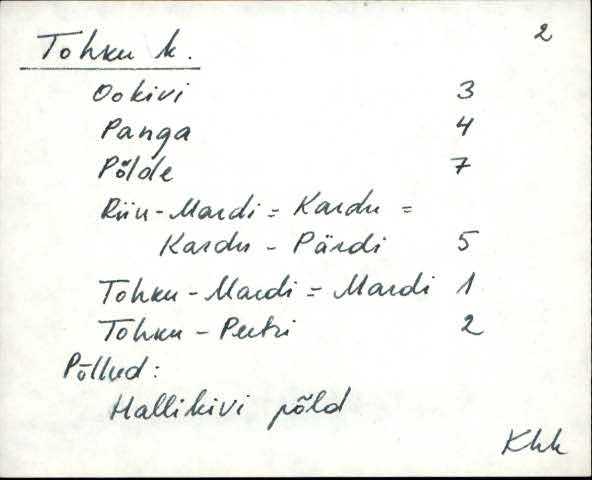 2
Tohku k.
Ookivi 3
Panga 4
Põlde 7
Riiu-Mardi = Kardu =
Kardu - Pärdi 5
Tohku-Mardi = Mardi 1
Tohku-Peetri 2
Põllud:
Hallikivi põld
Khk